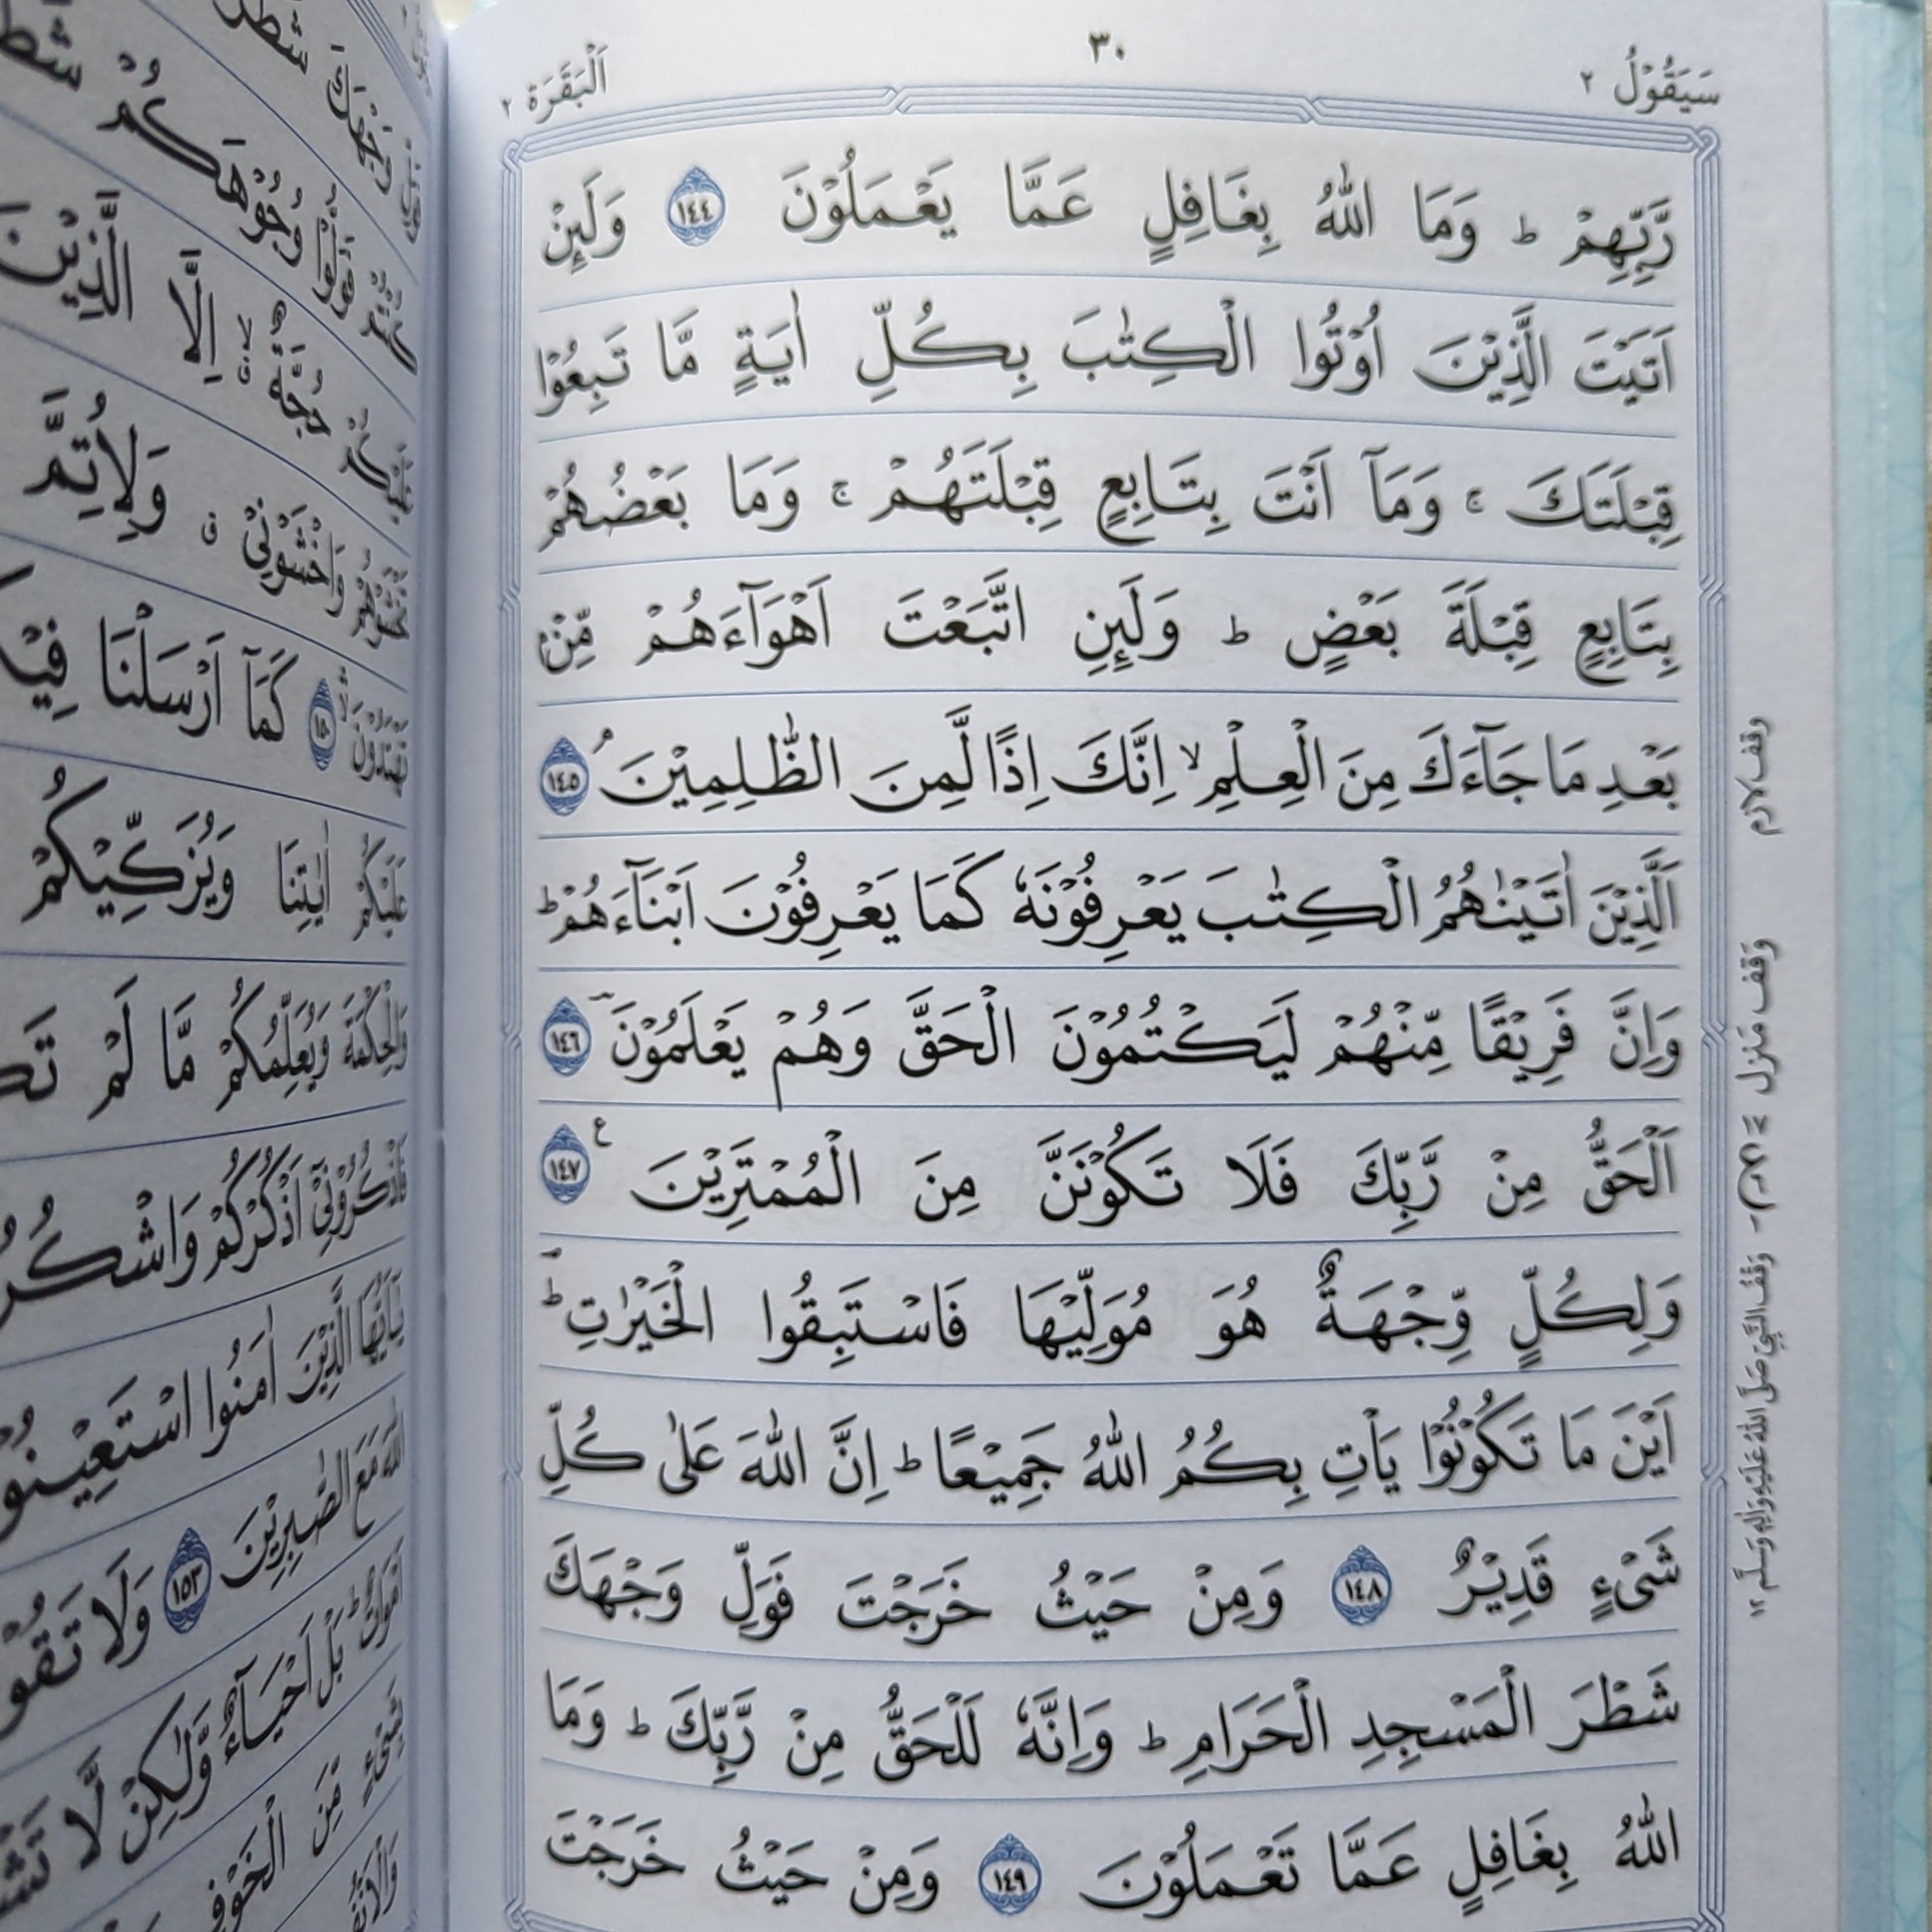 سَيَقُوْلُ ٢
٣٠
اَلْبَقَرَة ٢
رَّبِّهِمْ ؕ وَمَا اللّٰهُ بِغَافِلٍ عَمَّا يَعْمَلُوْنَ ١٤٤ وَلَىِٕنْ
اَتَيْتَ الَّذِيْنَ اُوْتُوا الْكِتٰبَ بِكُلِّ اٰيَةٍ مَّا تَبِعُوْا
قِبْلَتَكَ ۚ وَمَآ اَنْتَ بِتَابِعٍ قِبْلَتَهُمْ ۚ وَمَا بَعْضُهُمْ
بِتَابِعٍ قِبْلَةَ بَعْضٍ ؕ وَلَىِٕنِ اتَّبَعْتَ اَهْوَآءَهُمْ مِّنْۢ
بَعْدِ مَا جَآءَكَ مِنَ الْعِلْمِ ۙ اِنَّكَ اِذًا لَّمِنَ الظّٰلِمِيْنَ ۘ ١٤٥
اَلَّذِيْنَ اٰتَيْنٰهُمُ الْكِتٰبَ يَعْرِفُوْنَهٗ كَمَا يَعْرِفُوْنَ اَبْنَآءَهُمْ ؕ
وَاِنَّ فَرِيْقًا مِّنْهُمْ لَيَكْتُمُوْنَ الْحَقَّ وَهُمْ يَعْلَمُوْنَ ١٤٦
اَلْحَقُّ مِنْ رَّبِّكَ فَلَا تَكُوْنَنَّ مِنَ الْمُمْتَرِيْنَ ع ١٤٧
وَلِكُلٍّ وِّجْهَةٌ هُوَ مُوَلِّيْهَا فَاسْتَبِقُوا الْخَيْرٰتِ ؕ
اَيْنَ مَا تَكُوْنُوْا يَاْتِ بِكُمُ اللّٰهُ جَمِيْعًا ؕ اِنَّ اللّٰهَ عَلٰى كُلِّ
شَىْءٍ قَدِيْرٌ ١٤٨ وَمِنْ حَيْثُ خَرَجْتَ فَوَلِّ وَجْهَكَ
شَطْرَ الْمَسْجِدِ الْحَرَامِ ؕ وَاِنَّهٗ لَلْحَقُّ مِنْ رَّبِّكَ ؕ وَمَا
اللّٰهُ بِغَافِلٍ عَمَّا تَعْمَلُوْنَ ١٤٩ وَمِنْ حَيْثُ خَرَجْتَ
وقف لازم
وَقف مَنزل
وَقْفُ النَّبِيِّ صَلَّى اللّٰهُ عَلَيْهِ وَاٰلِهٖ وَسَلَّمَ ١٢
وَجْهَكَ
وُجُوْهَكُمْ
كُنْتُمْ فَوَلُّوْا
عَلَيْكُمْ حُجَّةٌ اِلَّا الَّذِيْنَ
تَخْشَوْهُمْ وَاخْشَوْنِيْ وَلِاُتِمَّ
تَهْتَدُوْنَ ١٥٠ كَمَآ اَرْسَلْنَا
عَلَيْكُمْ اٰيٰتِنَا وَيُزَكِّيْكُمْ
وَالْحِكْمَةَ وَيُعَلِّمُكُمْ مَّا لَمْ
فَاذْكُرُوْنِيْٓ اَذْكُرْكُمْ
يٰٓاَيُّهَا الَّذِيْنَ اٰمَنُوا
اللّٰهَ مَعَ الصّٰبِرِيْنَ ١٥٣ وَلَا
اَمْوَاتٌ ؕ بَلْ اَحْيَآءٌ وَّلٰكِنْ لَّا
مِّنَ الْخَوْفِ